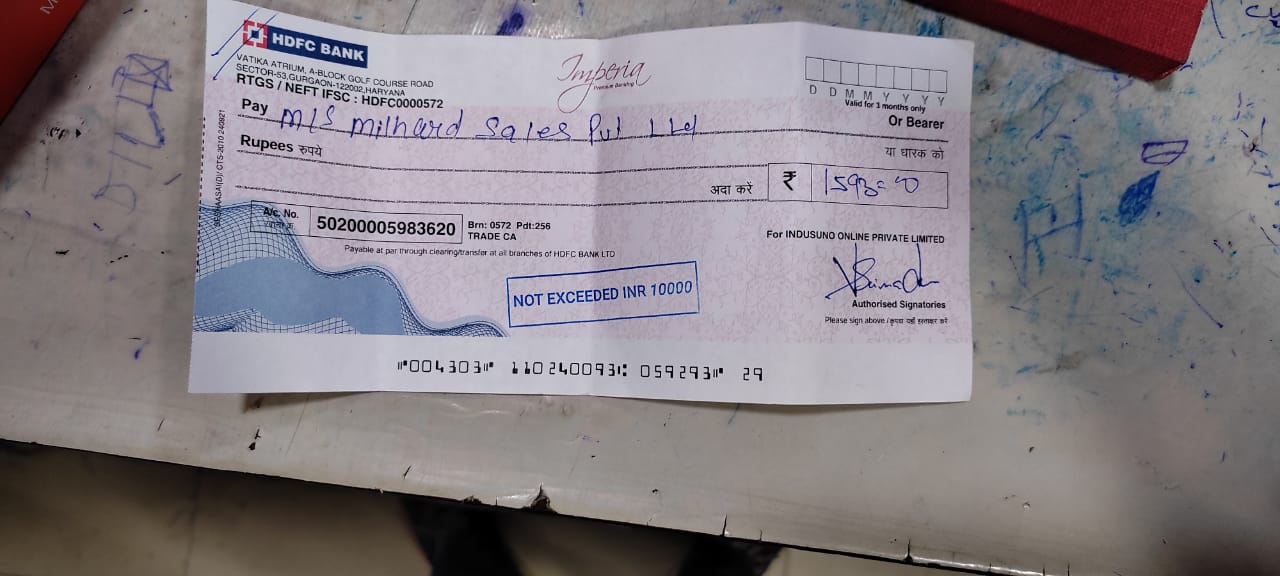 HDFC BANK
VATIKA ATRIUM, A-BLOCK GOLF COURSE ROAD
SECTOR-53,GURGAON-122002,HARYANA
RTGS / NEFT IFSC : HDFC0000572
Imperia
Premium Banking
D D M M Y Y Y Y
Valid for 3 months only
Pay M/S milhard Sales Pvt Ltd
Or Bearer
Rupees रुपये
या धारक को
अदा करें ₹ 1593=00
A/c. No. 50200005983620
Brn: 0572 Pdt:256
TRADE CA
Payable at par through clearing/transfer at all branches of HDFC BANK LTD
For INDUSUNO ONLINE PRIVATE LIMITED
NOT EXCEEDED INR 10000
Authorised Signatories
Please sign above / कृपया यहाँ हस्ताक्षर करें
⑈004303⑈ 110240093⑆ 059293⑈ 29